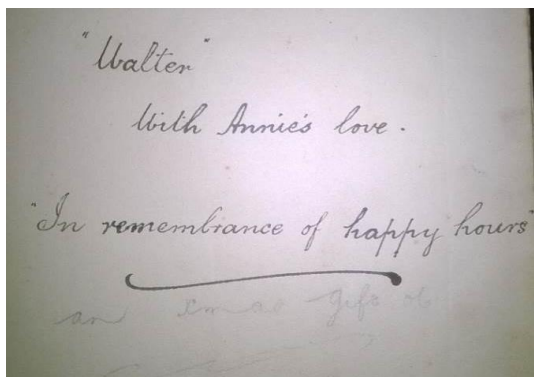 "Walter"
With Annie's love.
"In remembrance of happy hours"
an xmas gift